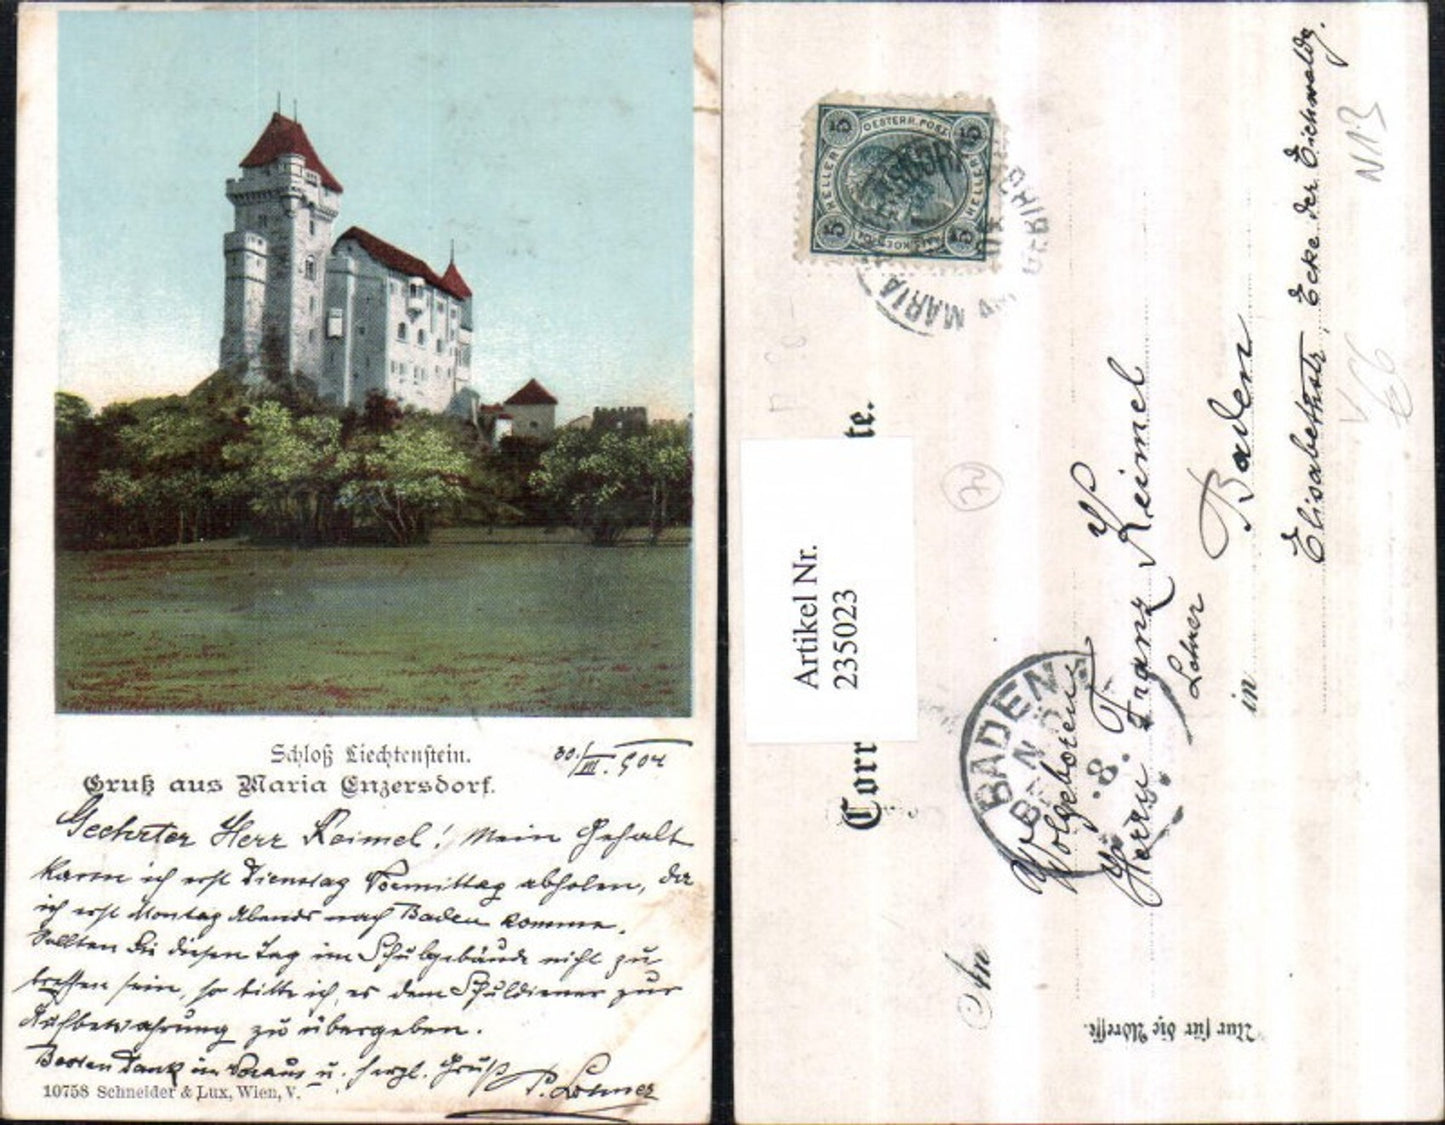 Schloß Liechtenstein.
30./III. 904
Gruß aus Maria Enzersdorf.
Geehrter Herr Reimel! Mein Gehalt
kann ich erst Dienstag Vormittag abholen, da
ich erst Montag Abends nach Baden komme.
Sollten Sie diesen Tag im Schulgebäude nicht zu
treffen sein, so bitte ich, es dem Schuldiener zur
Aufbewahrung zu übergeben.
Besten Dank im Voraus u. herzl. Gruß
10758 Schneider & Lux, Wien, V.
OESTERR. POST
5 HELLER 5
HELLER
5 5
MARIA
GEBIRGE
Artikel Nr.
235023
Corr te.
BADEN
8.
An
Wolgeboren
Herrn Franz Reimel
Lehrer
in Baden
Elisabethstr, Ecke der Eichwaldg.
Nur für die Adresse.
N13